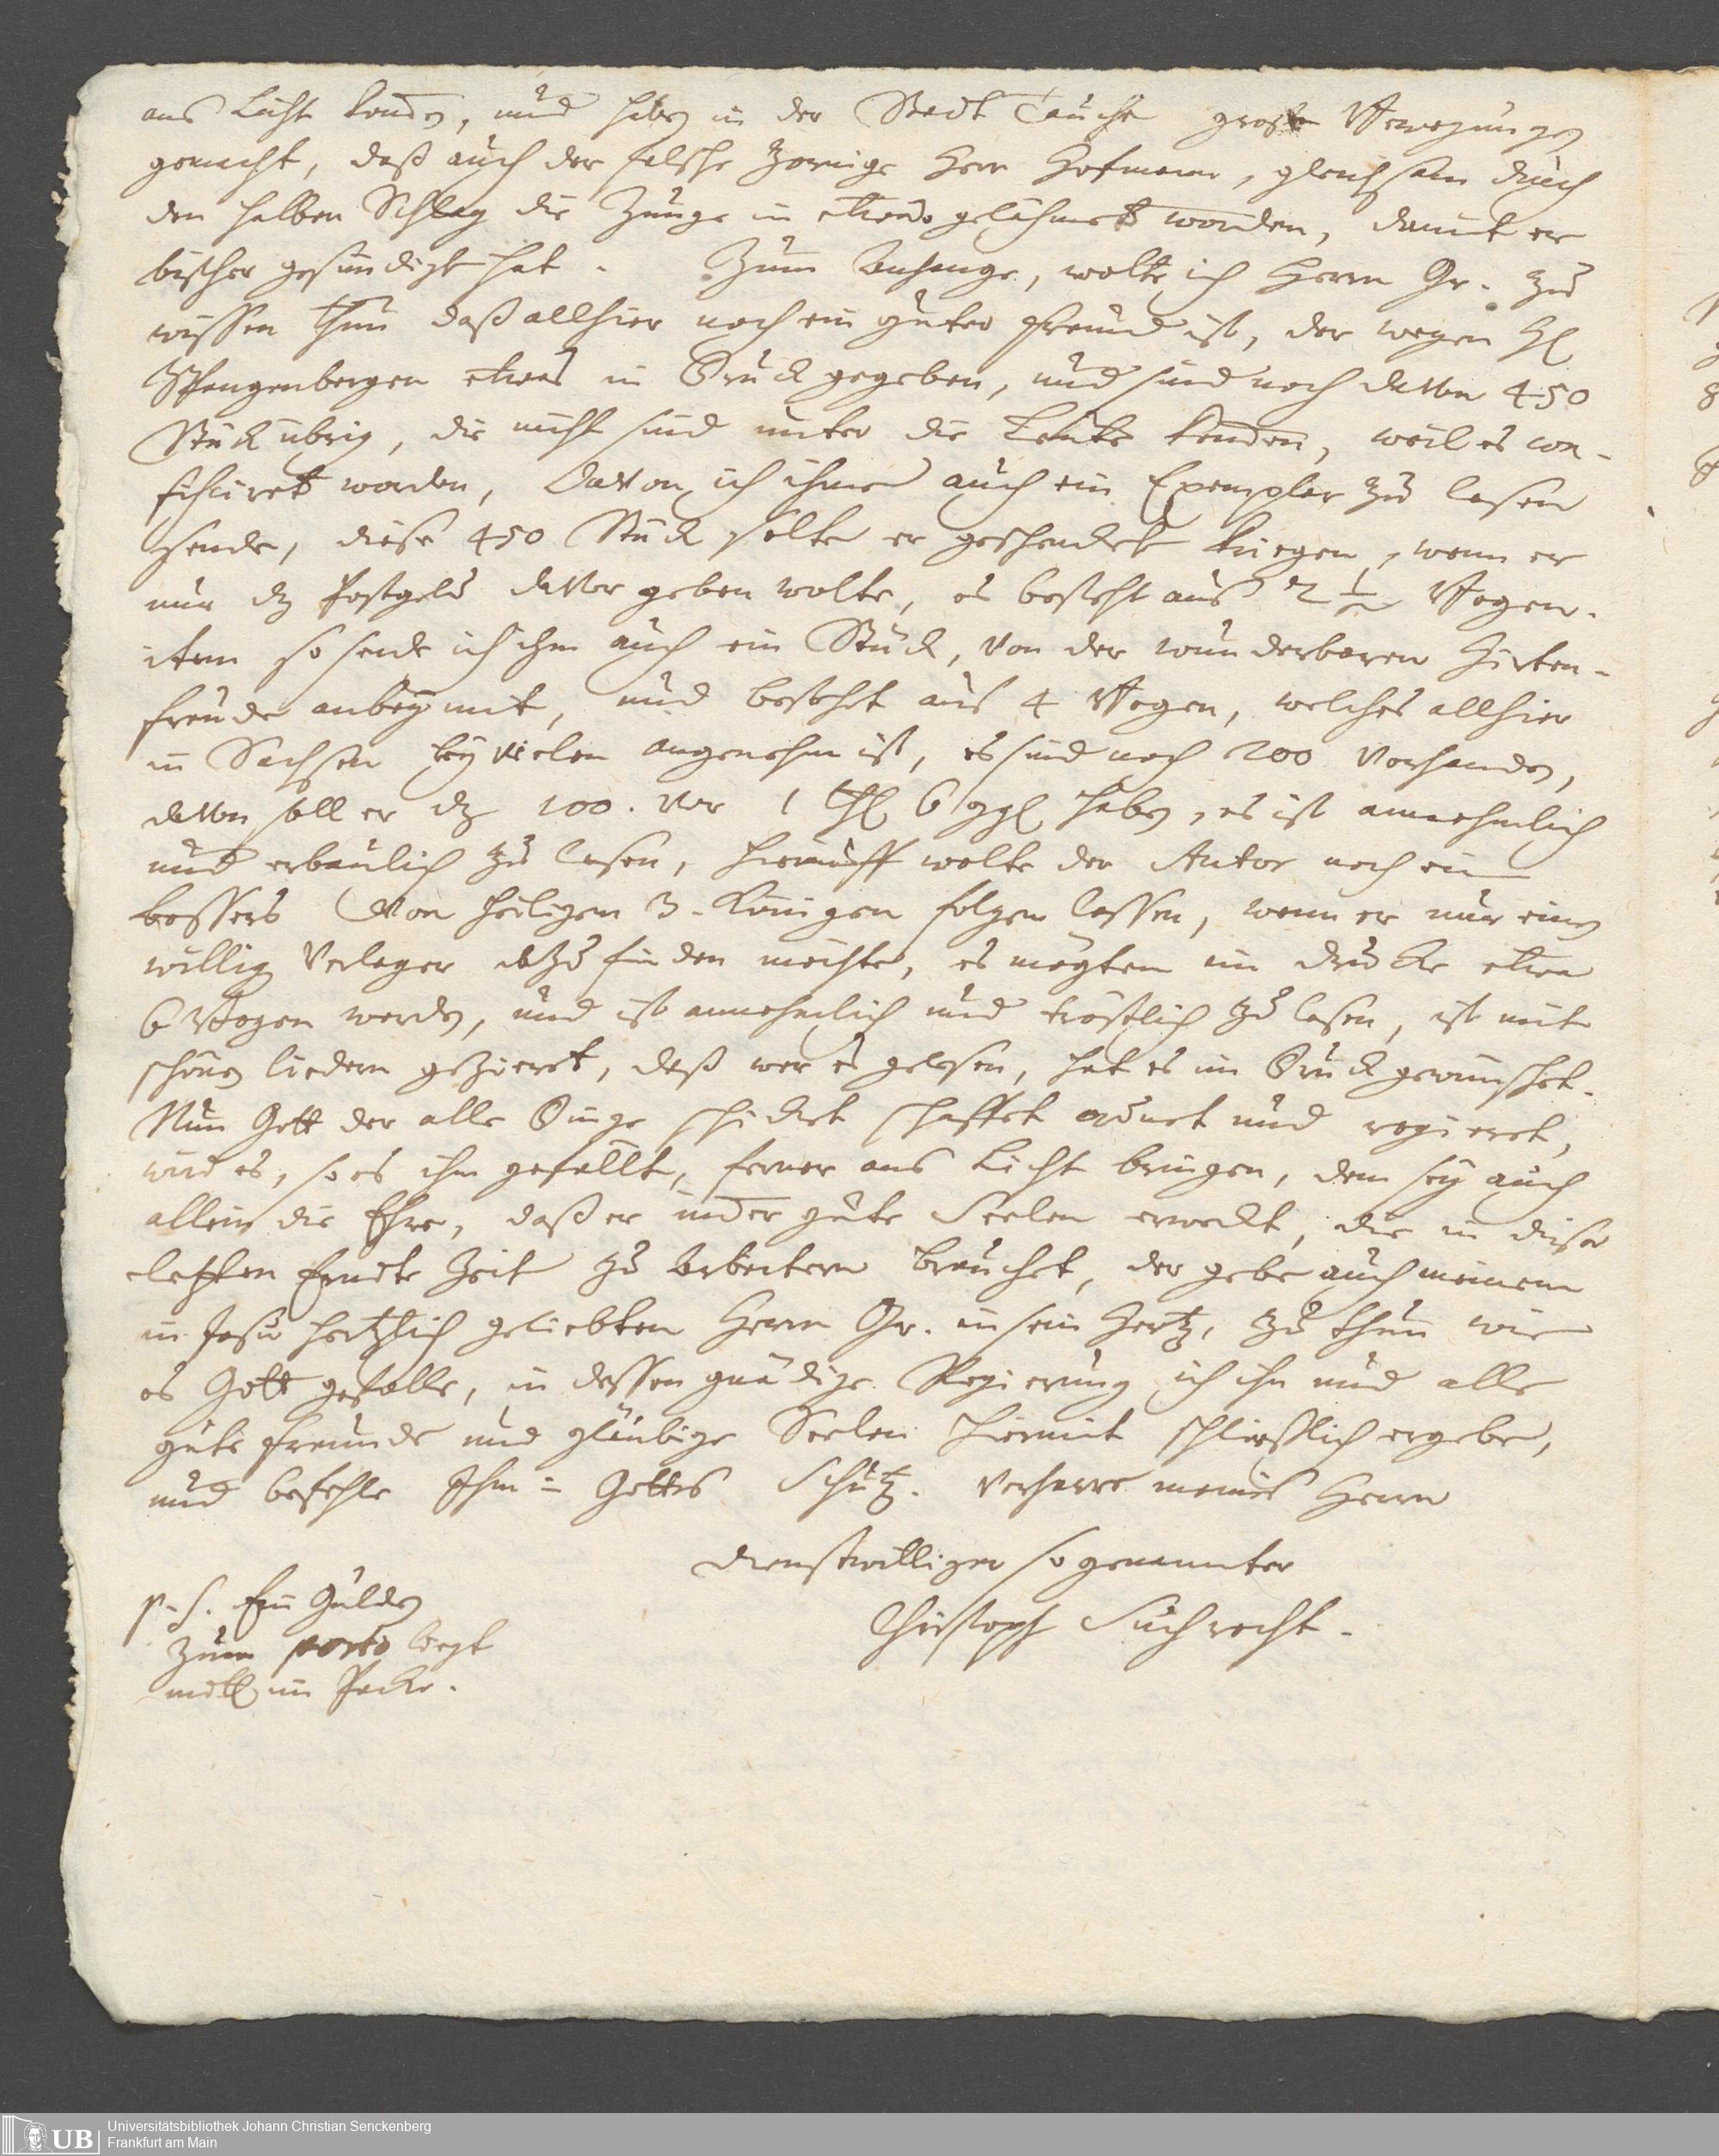 ans Licht kom̅en, und haben in der Stadt Taucha große Bewegungen
gemacht, daß auch der falsche zornige Herr Hofmann, gleichsam durch
den halben Schlag die Zunge in etwas gelähmet worden, damit er
bißher gesündiget hat. Zum Anhange, wolte ich Herrn Gr. zu
wissen thun daß allhier noch ein guter Freund ist, der wegen H.
Spangenbergen etwas in Druck gegeben, und sind noch davon 450
Stück übrig, die nicht sind unter die Leute kom̅en, weil es con-
fisciret worden, davon ich ihme auch ein Exemplar zu lesen
sende, diese 450 Stück solte er geschenckt kriegen, wenn er
nur dz Postgeld davor geben wolte, es besteht aus 2 1/2 Bogen.
item so sende ich ihm auch ein Stück, von der wunderbaren Hirten-
freude anbey mit, und besteht aus 4 Bogen, welches allhier
in Sachsen bey vielen angenehm ist, es sind noch 200 vorhanden,
davon soll er dz 100. vor 1 thl 6 ggl haben, es ist annehmlich
und erbaulich zu lesen, hierauff wolte der Autor noch ein
bessers von heiligen 3. Königen folgen lassen, wenn er nur einen
willig Verleger dazu finden möchte, es mögten im drucke etwa
6 Bogen werden, und ist annehmlich und tröstlich zu lesen, ist mit
schönen liedern gezieret, daß wer es gelesen, hat es im Druck gewünschet.
Nun Gott der alle Dinge schicket schaffet ordnet und regieret,
wird es, so es ihm gefällt, ferner ans Licht bringen, dem sey auch
allein die Ehre, daß er im̅er gute Seelen erweckt, die in dieser
letzten Erndte Zeit zu Arbeitern brauchet, der gebe auch meinem
in Jesu hertzlich geliebten Herrn Gr. in sein Hertz, zu thun wie
es Gott gefalle, in dessen gnädige Regierung ich ihn und alle
gute Freunde und gläubige Seelen hiermit schließlich ergebe,
und befehle Ihn in Gottes Schutz. Verharre meines Herrn
dienstwilliger so genannter
Christoph Suchrecht.
P. S. Ein Gulden
zum porto liegt
mit im Packe.